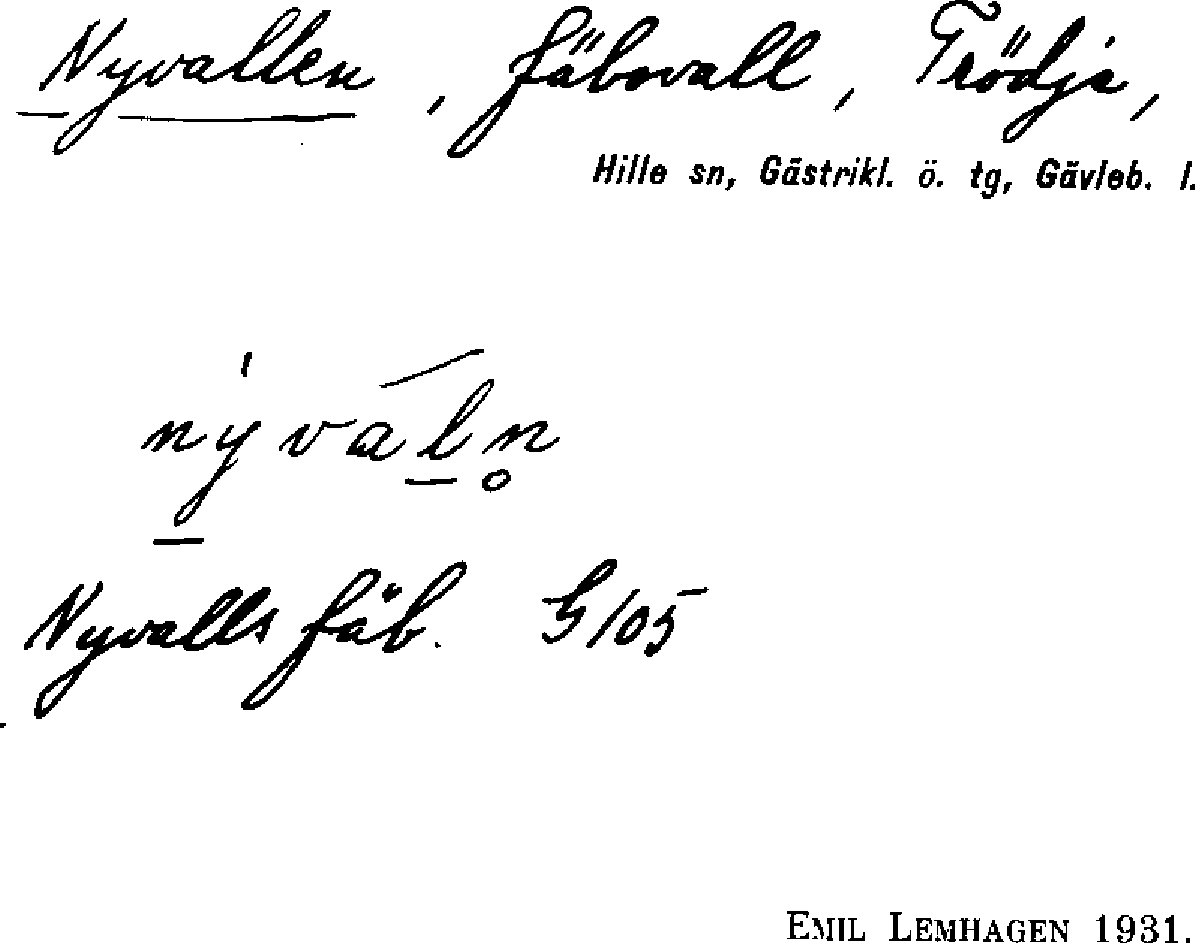 Nyvallen, fäbovall, Trödje,
Hille sn, Gästrikl. ö. tg, Gävleb. l.
nyvaln
Nyvalls fäb. G105
EMIL LEMHAGEN 1931.